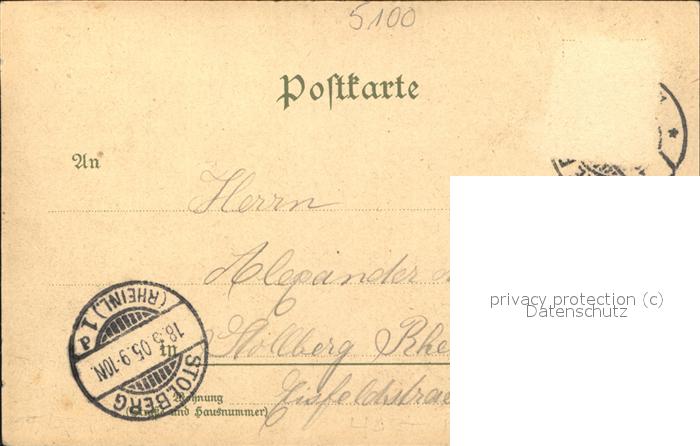 5100
Postkarte
An
Herrn
Alexander
Stollberg Rhe
in
Wohnung
(Straße und Hausnummer)
STOLBERG
(RHEINL.) 1
18.5.05.9-10N.
privacy protection (c)
Datenschutz